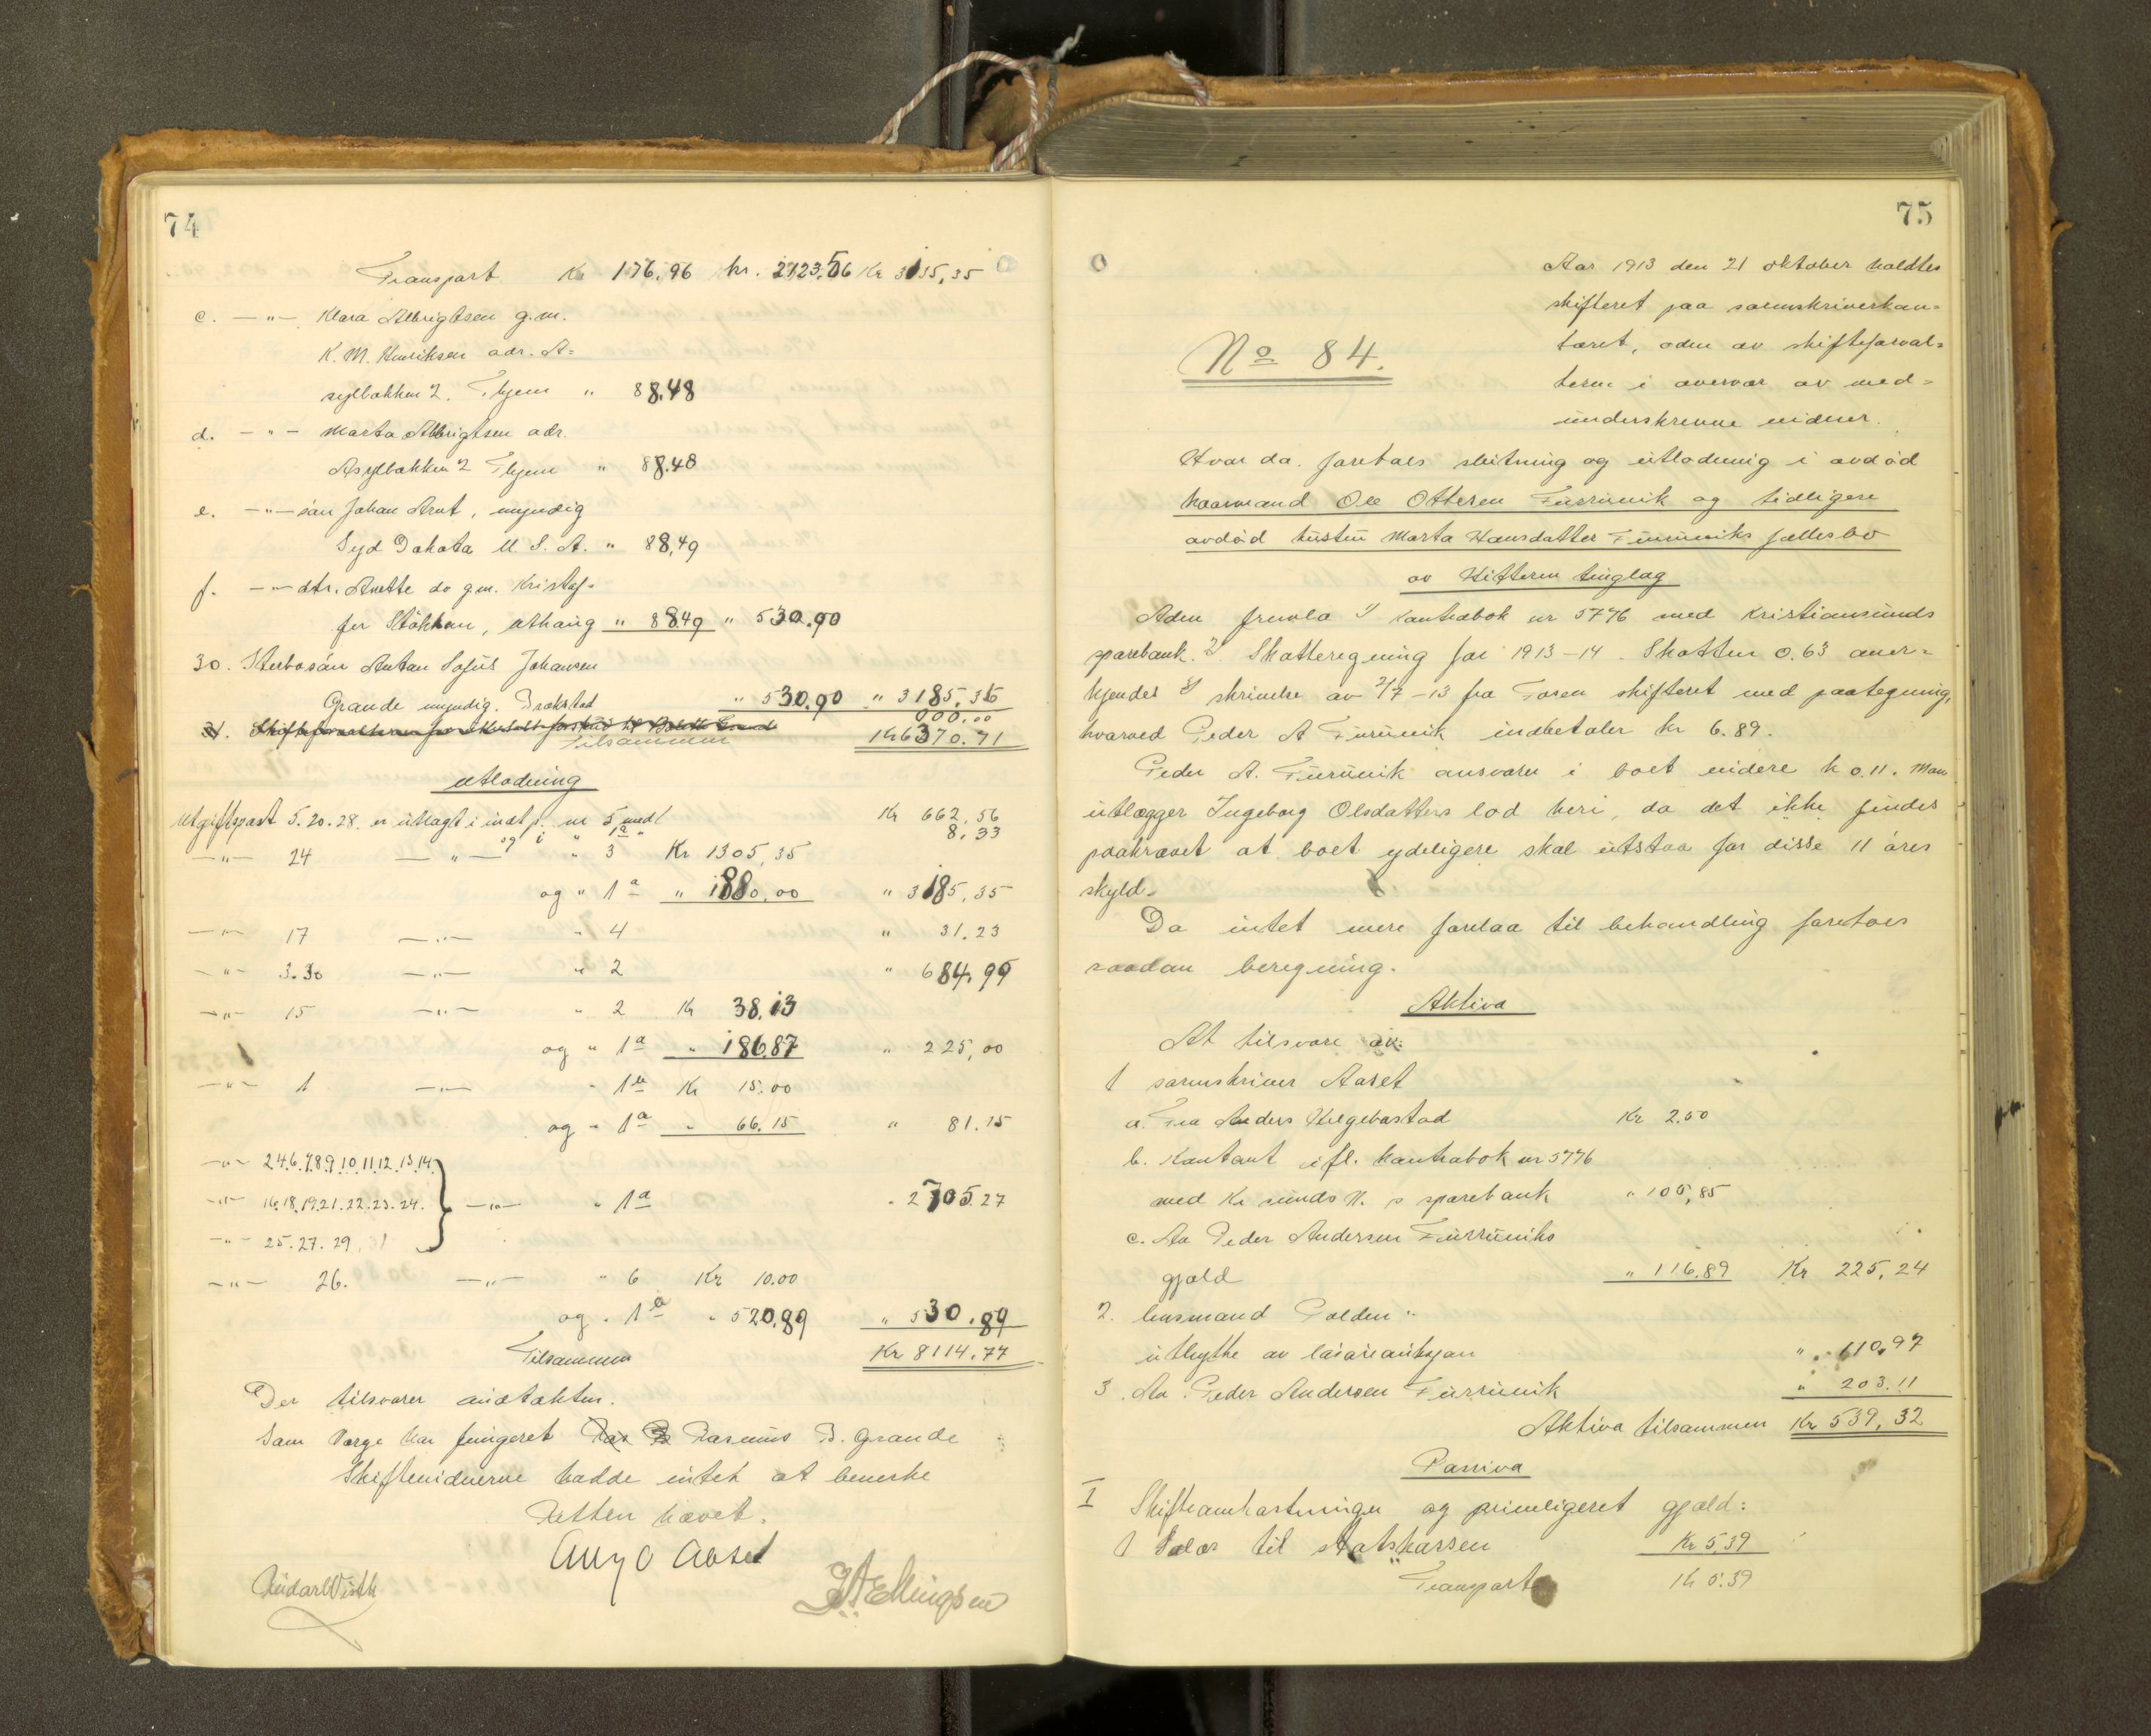 74
Transport Kr 176,96 kr. 2123,56 Kr 3185,35
c. —"— Klara Albrigtsen g.m.
K. M. Henriksen adr. A=
sylbakken 2. Thjem " 88,48
d. —"— Marta Albrigtsen adr.
Asylbakken 2 Thjem " 88,48
e. —"— søn Johan Arnt, myndig
Syd Dakota U.S.A. " 88,49
f. —"— dtr. Anette do g.m. Kristof-
fer " 88,49 " 530,90
30. Sterbosøn Anton Sofus Johansen
Grande myndig. Brekstad " 530,90 " 3185,36
000,00
Tilsammen Kr 6370.71
Utlodning
Utgiftspost 5.20.28. er utlagt i indt p. nr 5 med Kr 662,56
og i " 1a " 8,33
—"— 24 —"— " 3 Kr 1305,35
og " 1a " 1880,00 " 3185,35
—"— 17 —"— " 4 " 31.23
—"— 3.30 —"— " 2 " 684,99
—"— 15 —"— " 2 Kr 38,13
og " 1a " 186,87 " 225,00
—"— 1 —"— " 1b Kr 15.00
og " 1a " 66.15 " 81.15
—"— 2.4.6.7.8.9.10.11.12.13.14.
—"— 16.18.19.21.22.23.24. —"— " 1a " 2705.27
—"— 25.27.29.31
—"— 26. —"— " 6 Kr 10.00
og " 1a " 520,89 " 530,89
Tilsammen Kr 8114.77
Der tilsvarer indtækten.
Som Verge har fungeret Rasmus B. Grande
Skiftevidnerne hadde intet at bemerke
Retten hævet.
Aug O Aaset
Reidar Wisth
Ellingsen
75
Aar 1913 den 21 oktober holdtes
skifteret paa sorenskriverkon=
No 84.
toret, aden av skifteforval=
teren i overvær av med=
underskrevne vidner.
Hvor da foretoes slutning og utlodning i avdød
kaarmand Ole Ottersen Furuvik og tidligere
avdød hustru Marta Hansdatter Furuviks fællesbo
av Hitteren tinglag
Aden fremla 1) kontrabok nr 5776 med Kristiansunds
sparebank. 2) Skatteregning for 1913-14. Skatten 0.63 aner=
kjendes 3) skrivelse av 2/7-13 fra Foren skifteret med paategning,
hvorved Peder A Furuvik indbetaler kr 6.89.
Peder A. Furuvik ansvarer i boet videre kr 0.11. Man
utlægger Ingeborg Olsdatters lod heri, da det ikke findes
paakrævet at boet ydeligere skal utstaa for disse 11 øres
skyld.
Da intet mere forelaa til behandling foretoes
saadan beregning.
Aktiva
At tilsvare av:
1 sorenskriver Aaset
a. Fra Anders Helgebostad Kr 2.50
b. Kontant ifl. kontrabok nr 5776
med Kr sunds N. s sparebank " 105,85
c. Av Peder Andersen Furuviks
gjæld " 116.89 Kr 225,24
2. lensmand Folden:
utbytte av løsøreauksjon " 110,97
3. Av Peder Andersen Furuvik " 203.11
Aktiva tilsammen Kr 539,32
Passiva
I Skifteomkostninger og privligeret gjæld:
1 Salær til statskassen Kr 5.39
Transport Kr 5.39